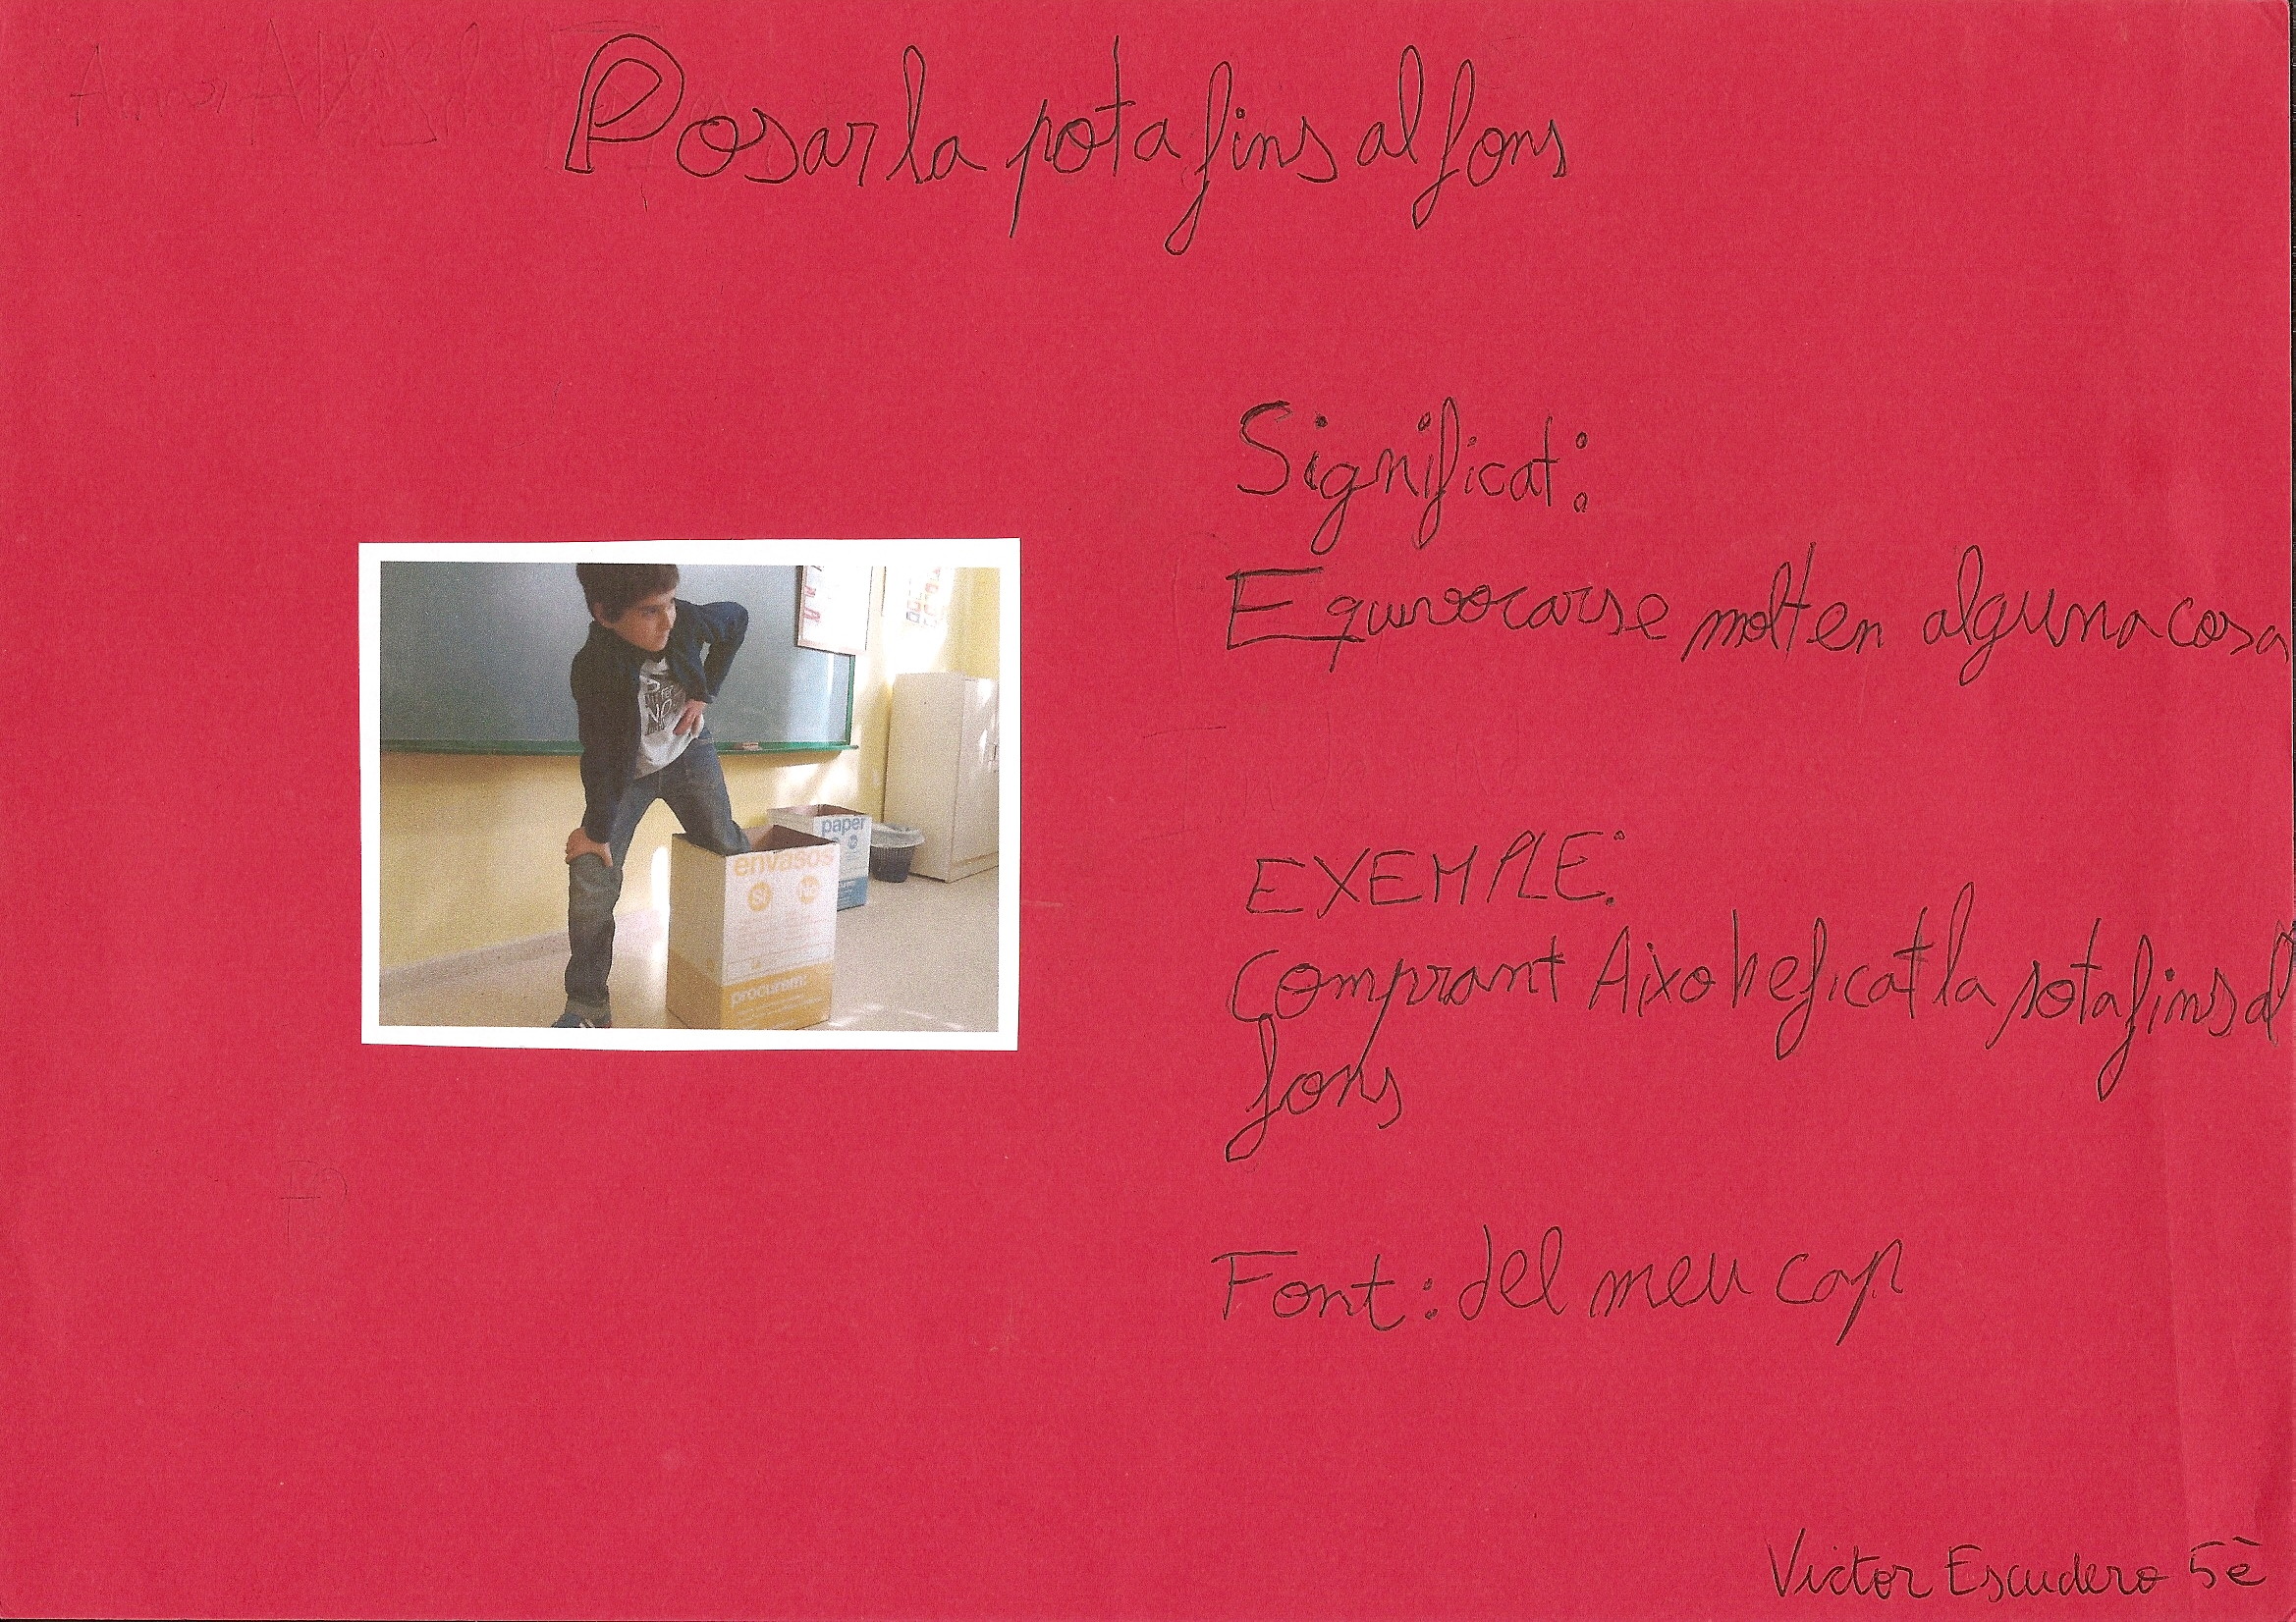 Posar la pota fins al fons
Significat:
Equivocarse molt en alguna cosa
EXEMPLE:
Comprant Aixo he ficat la pota fins al
fons
Font: del meu cap
Victor Escudero 5è
envasos
SI
No
procurem:
paper